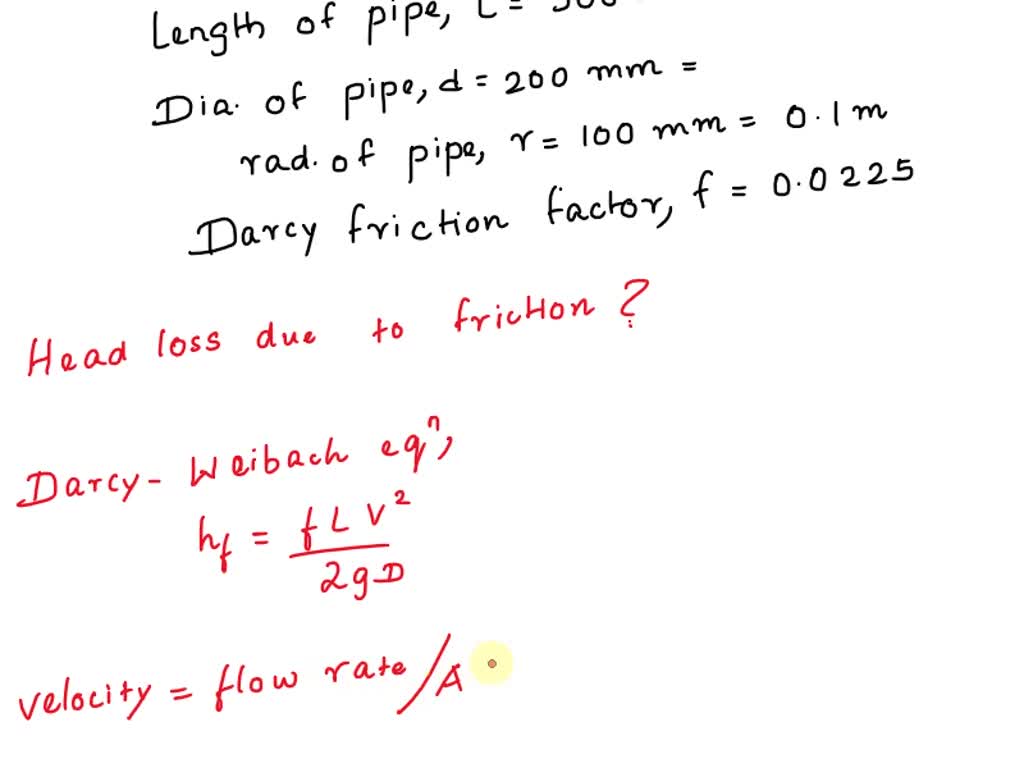 Length of pipe, L =
Dia. of pipe, d = 200 mm =
rad. of pipe, r = 100 mm = 0.1 m
Darcy friction factor, f = 0.0225
Head loss due to friction ?
Darcy - Weibach eqⁿ,
hf = fLV² / 2gD
velocity = flow rate / A